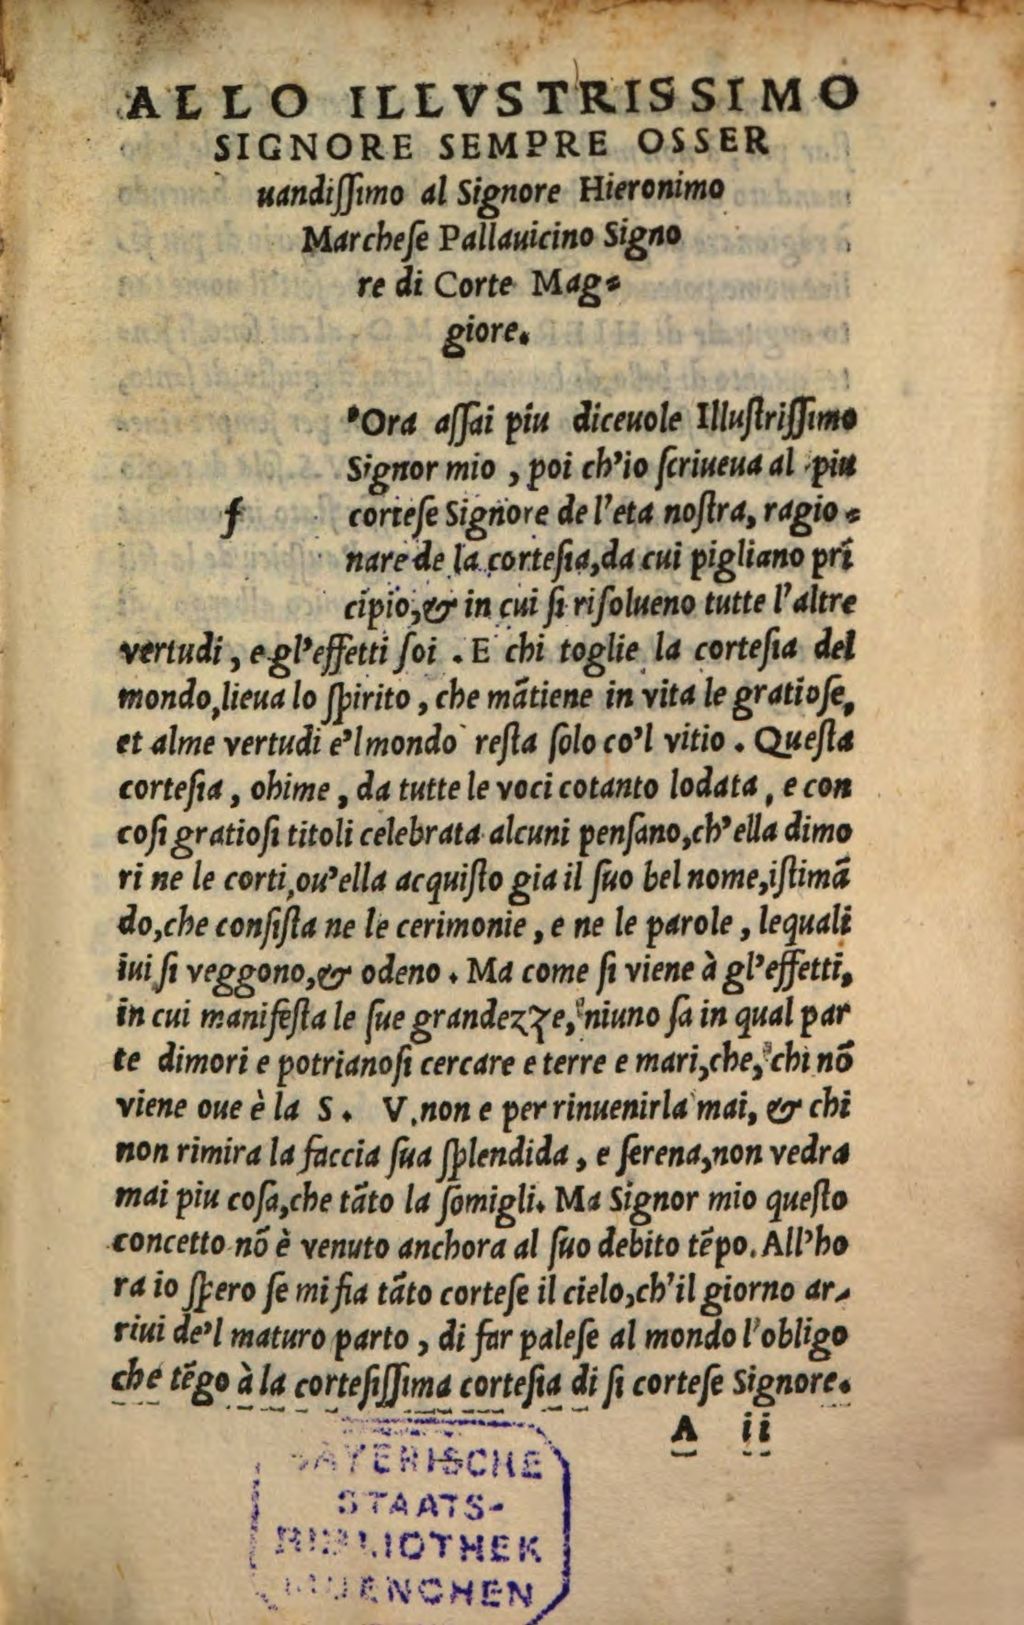 ALLO ILLVSTRISSIMO
SIGNORE SEMPRE OSSER
uandiſſimo al Signore Hieronimo
Marcheſe Pallauicino Signo
re di Corte Mag-
giore.
'Ora aſſai piu diceuole Illuſtriſſimo
Signor mio , poi ch'io ſcriueua al piu
f corteſe Signore de l'eta noſtra, ragio-
nare de la corteſia,da cui pigliano prī
cipio,& in cui ſi riſolueno tutte l'altre
vertudi , e gl'effetti ſoi . E chi toglie la corteſia del
mondo,lieua lo ſpirito , che mātiene in vita le gratioſe,
et alme vertudi e'l mondo reſta ſolo co'l vitio . Queſta
corteſia , ohime , da tutte le voci cotanto lodata , e con
coſi gratioſi titoli celebrata alcuni penſano,ch'ella dimo
ri ne le corti,ou'ella acquiſto gia il ſuo bel nome,iſtimā
do,che conſiſta ne le cerimonie , e ne le parole , lequali
iui ſi veggono,& odeno . Ma come ſi viene à gl'effetti,
in cui manifeſta le ſue grandezze, niuno ſa in qual par
te dimori e potrianoſi cercare e terre e mari,che, chi nō
viene oue è la S . V.non e per rinuenirla mai, & chi
non rimira la faccia ſua ſplendida , e ſerena,non vedra
mai piu coſa,che tāto la ſomigli. Ma Signor mio queſto
concetto nō è venuto anchora al ſuo debito tēpo. All'ho
ra io ſpero ſe mi fia tāto corteſe il cielo,ch'il giorno ar-
riui de'l maturo parto , di far paleſe al mondo l'obligo
che tēgo à la corteſiſſima corteſia di ſi corteſe Signore.
A ii
BAYERISCHE
STAATS-
BIBLIOTHEK
MUENCHEN